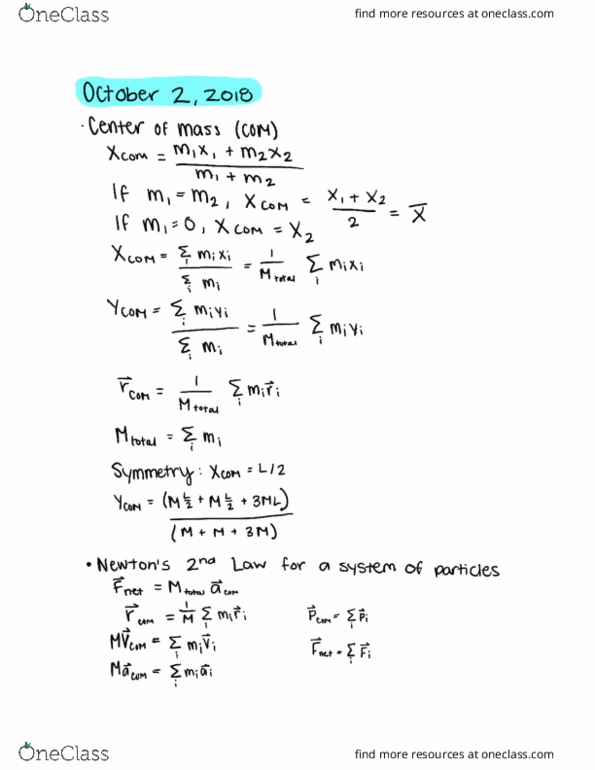 OneClass
find more resources at oneclass.com
October 2, 2018
· Center of mass (COM)
X_COM = (m₁x₁ + m₂x₂) / (m₁ + m₂)
If m₁ = m₂, X_COM = (x₁ + x₂) / 2 = x̄
If m₁ = 0, X_COM = X₂
X_COM = Σᵢ mᵢxᵢ / Σᵢ mᵢ = 1/M_total Σᵢ mᵢxᵢ
Y_COM = Σᵢ mᵢyᵢ / Σᵢ mᵢ = 1/M_total Σᵢ mᵢyᵢ
r⃗_COM = 1/M_total Σᵢ mᵢr⃗ᵢ
M_total = Σᵢ mᵢ
Symmetry: X_COM = L/2
Y_COM = (M L/2 + M L/2 + 3ML) / (M + M + 3M)
• Newton's 2nd Law for a system of particles
F⃗_net = M_total a⃗_com
r⃗_com = 1/M Σᵢ mᵢr⃗ᵢ P⃗_com = Σᵢ P⃗ᵢ
MV⃗_COM = Σᵢ mᵢv⃗ᵢ F⃗_net = Σᵢ F⃗ᵢ
Ma⃗_COM = Σᵢ mᵢa⃗ᵢ
OneClass
find more resources at oneclass.com